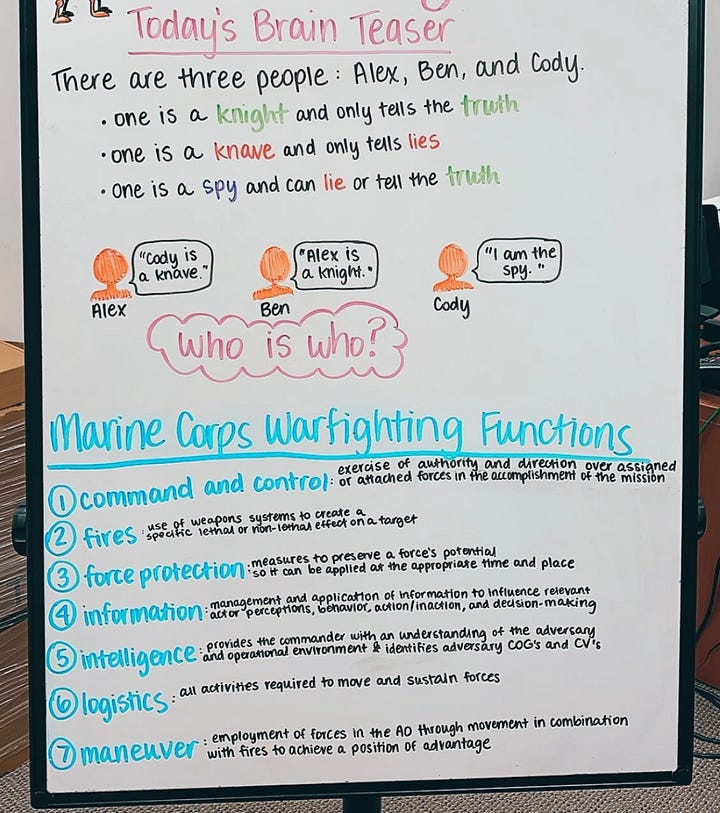 Today's Brain Teaser
There are three people: Alex, Ben, and Cody.
• one is a knight and only tells the truth
• one is a knave and only tells lies
• one is a spy and can lie or tell the truth
"Cody is
a knave."
Alex
"Alex is
a knight."
Ben
"I am the
spy."
Cody
who is who?
Marine Corps Warfighting Functions
① command and control: exercise of authority and direction over assigned
or attached forces in the accomplishment of the mission
② fires: use of weapons systems to create a
specific lethal or non-lethal effect on a target
③ force protection: measures to preserve a force's potential
so it can be applied at the appropriate time and place
④ information: management and application of information to influence relevant
actor perceptions, behavior, action/inaction, and decision-making
⑤ intelligence: provides the commander with an understanding of the adversary
and operational environment & identifies adversary COG's and CV's
⑥ logistics: all activities required to move and sustain forces
⑦ maneuver: employment of forces in the AO through movement in combination
with fires to achieve a position of advantage